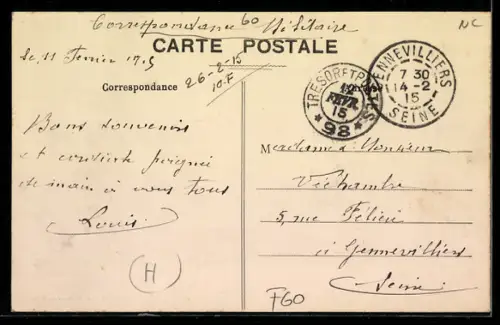 Correspondance Militaire
60
NC
CARTE POSTALE
Le, 11 Fevrier 1915
26-2-15
10.F
Correspondance
TRESOR ET POSTES
12
FEVR
15
* 98 *
GENNEVILLIERS
7 30
14 -2
15
SEINE
Bons souvenirs
et cordiale poignée
de main à vous tous
Louis
Madame & Monsieur
Véchambre
5, rue Félicie
à Gennevilliers
Seine
H
F60